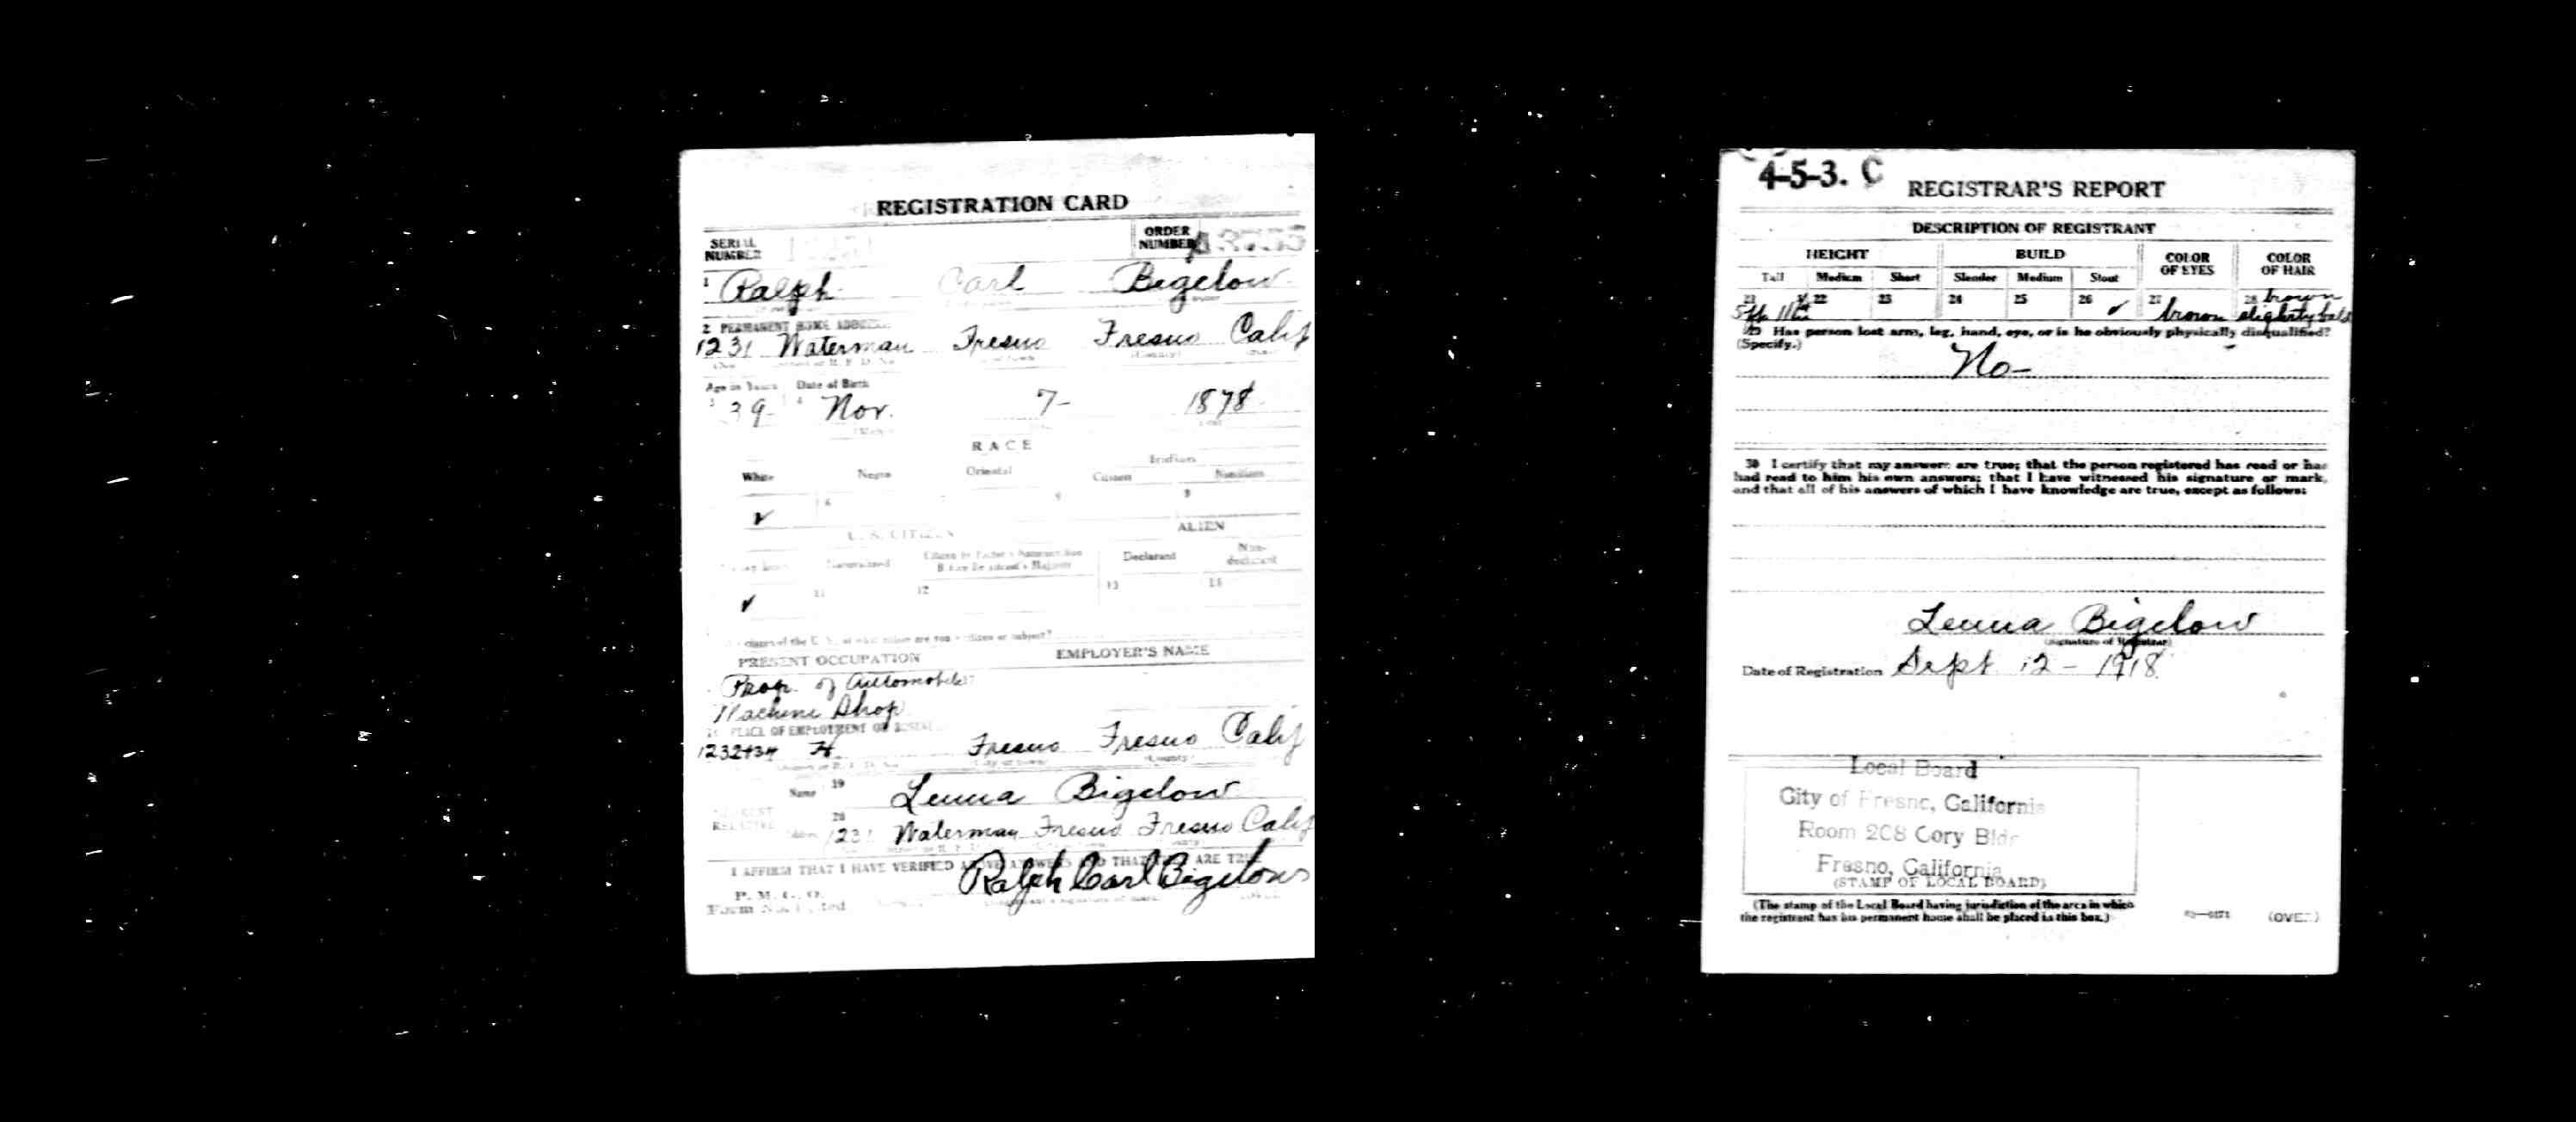 REGISTRATION CARD
SERIAL NUMBER
ORDER NUMBER
1 Ralph Carl Bigelow
2 PERMANENT HOME ADDRESS
1231 Waterman Fresno Fresno Calif
Age in Years Date of Birth
3 39 4 Nov. 7- 1878
RACE
White Negro Oriental Indian
Citizen
✓ 6 9
U. S. CITIZEN ALIEN
Declarant Non-declarant
✓ 11 12 13 14
PRESENT OCCUPATION EMPLOYER'S NAME
Prop. of Automobile
Machine Shop
PLACE OF EMPLOYMENT OR BUSINESS
Fresno Fresno Calif
Name 19 Lenna Bigelow
NEAREST RELATIVE
20
Address 1231 Waterman Fresno Fresno Calif
I AFFIRM THAT I HAVE VERIFIED ABOVE ANSWERS AND THAT THEY ARE TRUE
P. M. G. O.
Ralph Carl Bigelow
4-5-3. C REGISTRAR'S REPORT
DESCRIPTION OF REGISTRANT
HEIGHT BUILD COLOR OF EYES COLOR OF HAIR
Tall Medium Short Slender Medium Stout
21 22 23 24 25 26 ✓ 27 brown 28 brown slightly bald
29 Has person lost arm, leg, hand, eye, or is he obviously physically disqualified?
(Specify.)
No-
30 I certify that my answers are true; that the person registered has read or has
had read to him his own answers; that I have witnessed his signature or mark,
and that all of his answers of which I have knowledge are true, except as follows:
Lenna Bigelow
(Signature of Registrar)
Date of Registration Sept. 12 - 1918
Local Board
City of Fresno, California
Room 208 Cory Bldg
Fresno, California
(STAMP OF LOCAL BOARD)
(The stamp of the Local Board having jurisdiction of the area in which
the registrant has his permanent home shall be placed in this box.)
(OVER)